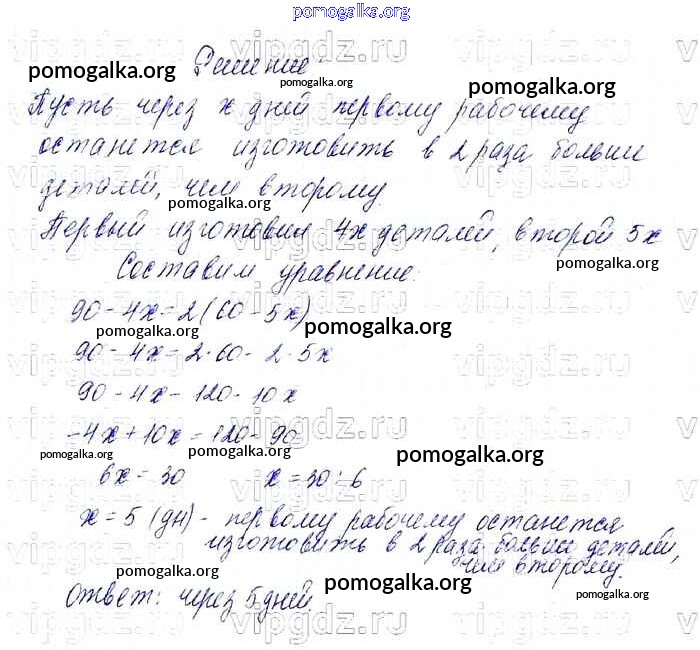 pomogalka.org
Решение:
Пусть через x дней первому рабочему
останется изготовить в 2 раза больше
деталей, чем второму.
Первый изготовил 4x деталей, второй 5x
Составим уравнение:
90-4x=2(60-5x)
90-4x=2·60-2·5x
90-4x=120-10x
-4x+10x=120-90
6x=30 x=30:6
x=5 (дн) - первому рабочему останется
изготовить в 2 раза больше деталей,
чем второму.
Ответ: через 5 дней.
vipgdz.ru
vipgdz.ru
pomogalka.org
pomogalka.org
pomogalka.org
pomogalka.org
pomogalka.org
pomogalka.org
pomogalka.org
pomogalka.org
pomogalka.org
pomogalka.org
pomogalka.org
pomogalka.org
pomogalka.org